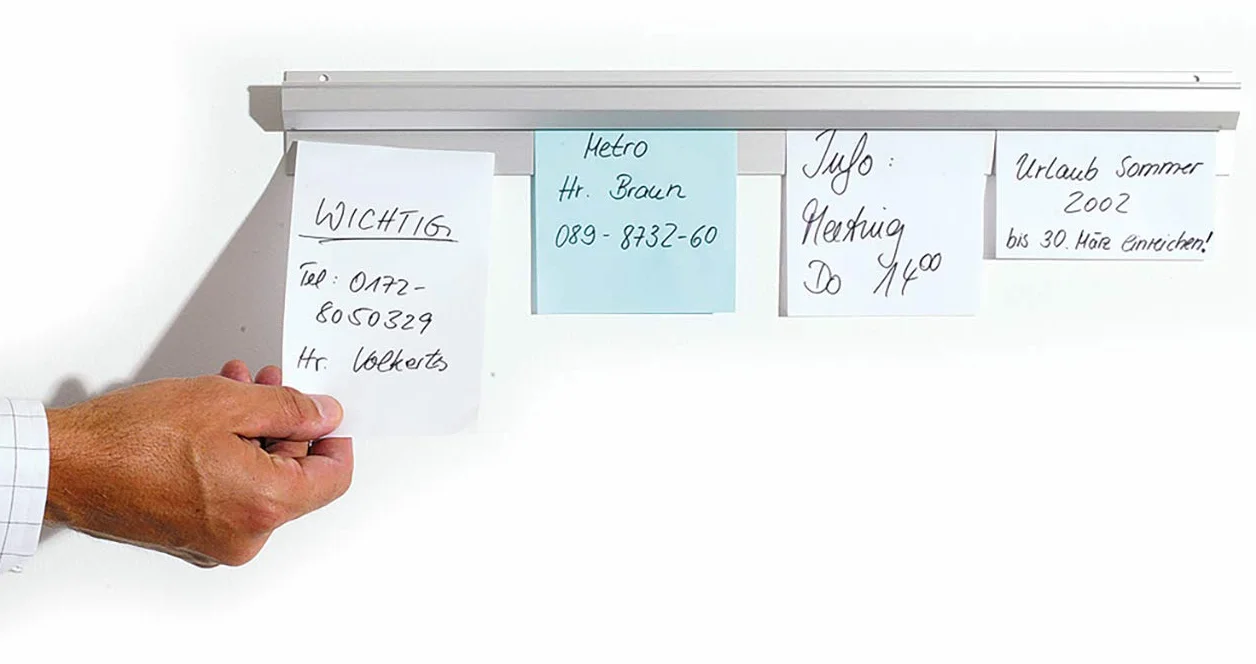 WICHTIG
Tel: 0172-
8050329
Hr. Volkerts
Metro
Hr. Braun
089-8732-60
Info:
Meeting
Do 14⁰⁰
Urlaub Sommer
2002
bis 30. März einreichen!